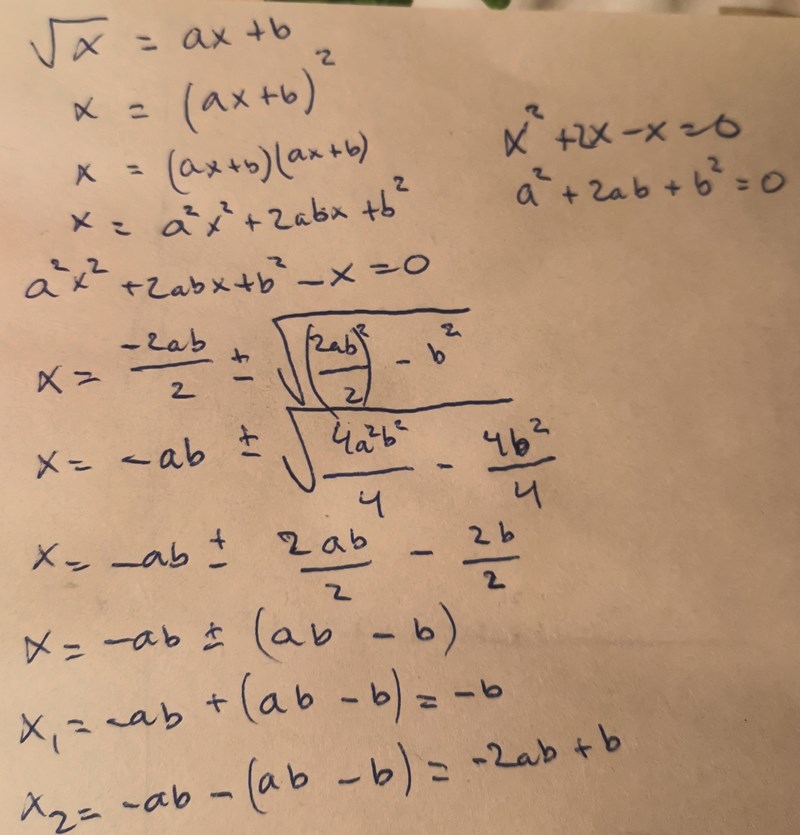 √x = ax + b
x = (ax+b)²
x = (ax+b)(ax+b)
x = a²x² + 2abx + b²
x² + 2x - x = 0
a² + 2ab + b² = 0
a²x² + 2abx + b² - x = 0
x = -2ab/2 ± √((2ab/2)² - b²)
x = -ab ± √(4a²b²/4 - 4b²/4)
x = -ab ± 2ab/2 - 2b/2
x = -ab ± (ab - b)
x₁ = -ab + (ab - b) = -b
x₂ = -ab - (ab - b) = -2ab + b